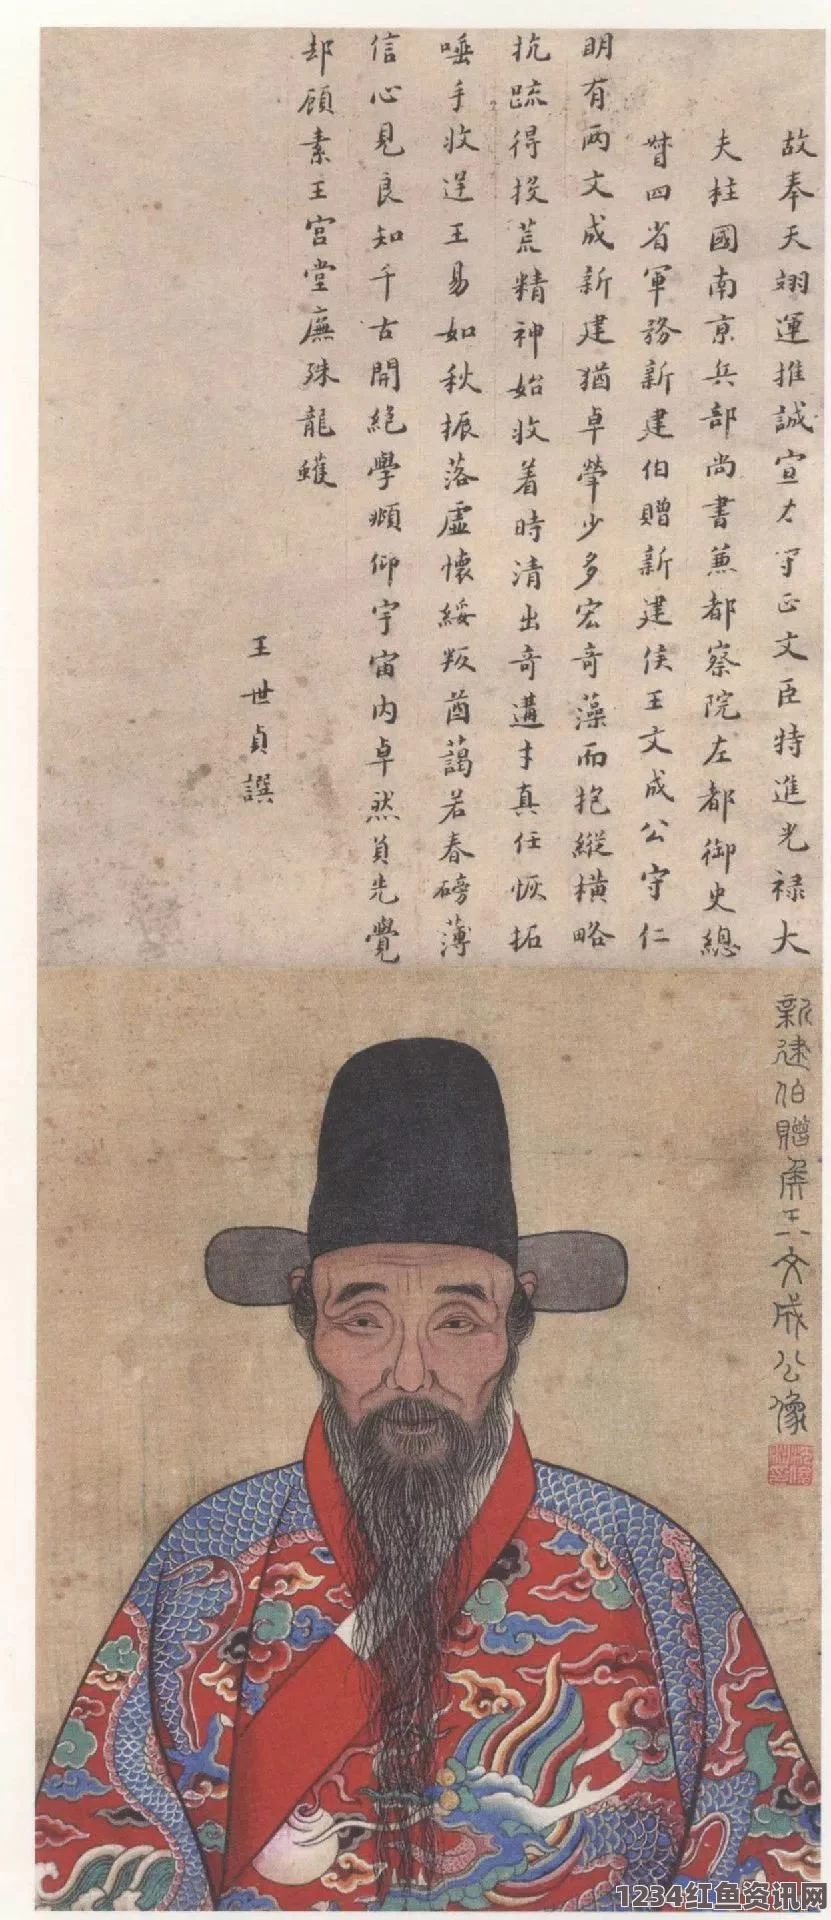 故奉天翊運推誠宣力守正文臣特進光祿大
夫柱國南京兵部尚書兼都察院左都御史總
督四省軍務新建伯贈新建侯王文成公守仁
明有兩文成新建猶卓犖少多宏奇藻而抱縱橫略
抗疏得投荒精神始收着時清出奇遘才真任恢拓
唾手收逆王易如秋振落虛懷綏叛酋藹若春磅薄
信心見良知千古開絕學頫仰宇宙内卓然負先覺
却顧素王宮堂廡殊龍蠖
王世貞譔
新建伯贈侯王文成公像
1234红鱼资讯网